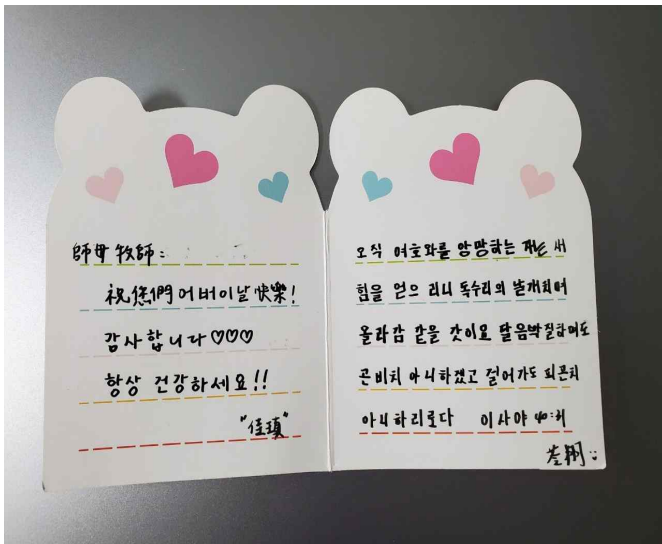 師母 牧師:
祝您們 어버이날 快樂!
감사합니다♡♡♡
항상 건강하세요!!
"佳瑱"
오직 여호와를 앙망하는 자는 새
힘을 얻으 리니 독수리의 날개치며
올라감 같을 것이요 달음박질하여도
곤비치 아니하겠고 걸어가도 피곤치
아니하리로다 이사야 40:31